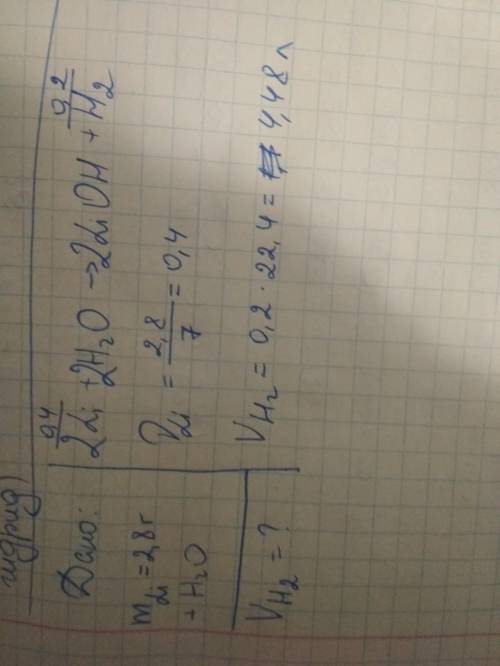 гидрид)
Дано:
m Li = 2,8 г
+ H₂O
V H₂ = ?
0,4 0,2
2Li + 2H₂O → 2LiOH + H₂
ν Li = 2,8 / 7 = 0,4
V H₂ = 0,2 · 22,4 = 4,48 л